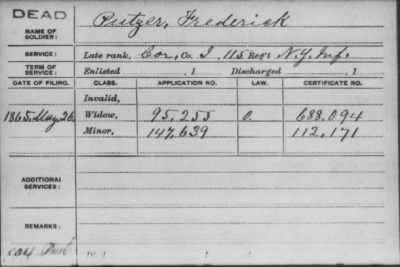 DEAD
NAME OF SOLDIER: Putzer, Frederick
SERVICE: Late rank, Cor, Co. I, 115 Reg't N.Y. Inf.
TERM OF SERVICE: Enlisted , 1 Discharged , 1
DATE OF FILING. CLASS. APPLICATION NO. LAW. CERTIFICATE NO.
Invalid,
1865, May 26 Widow, 95,255 O. 688,094
Minor, 147,639 112,171
ADDITIONAL SERVICES:
REMARKS: